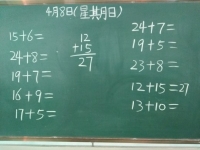 4月8日(星期日)
15+6=
24+8=
19+7=
16+9=
17+5=
12
+15
27
24+7=
19+5=
23+8=
12+15=27
13+10=